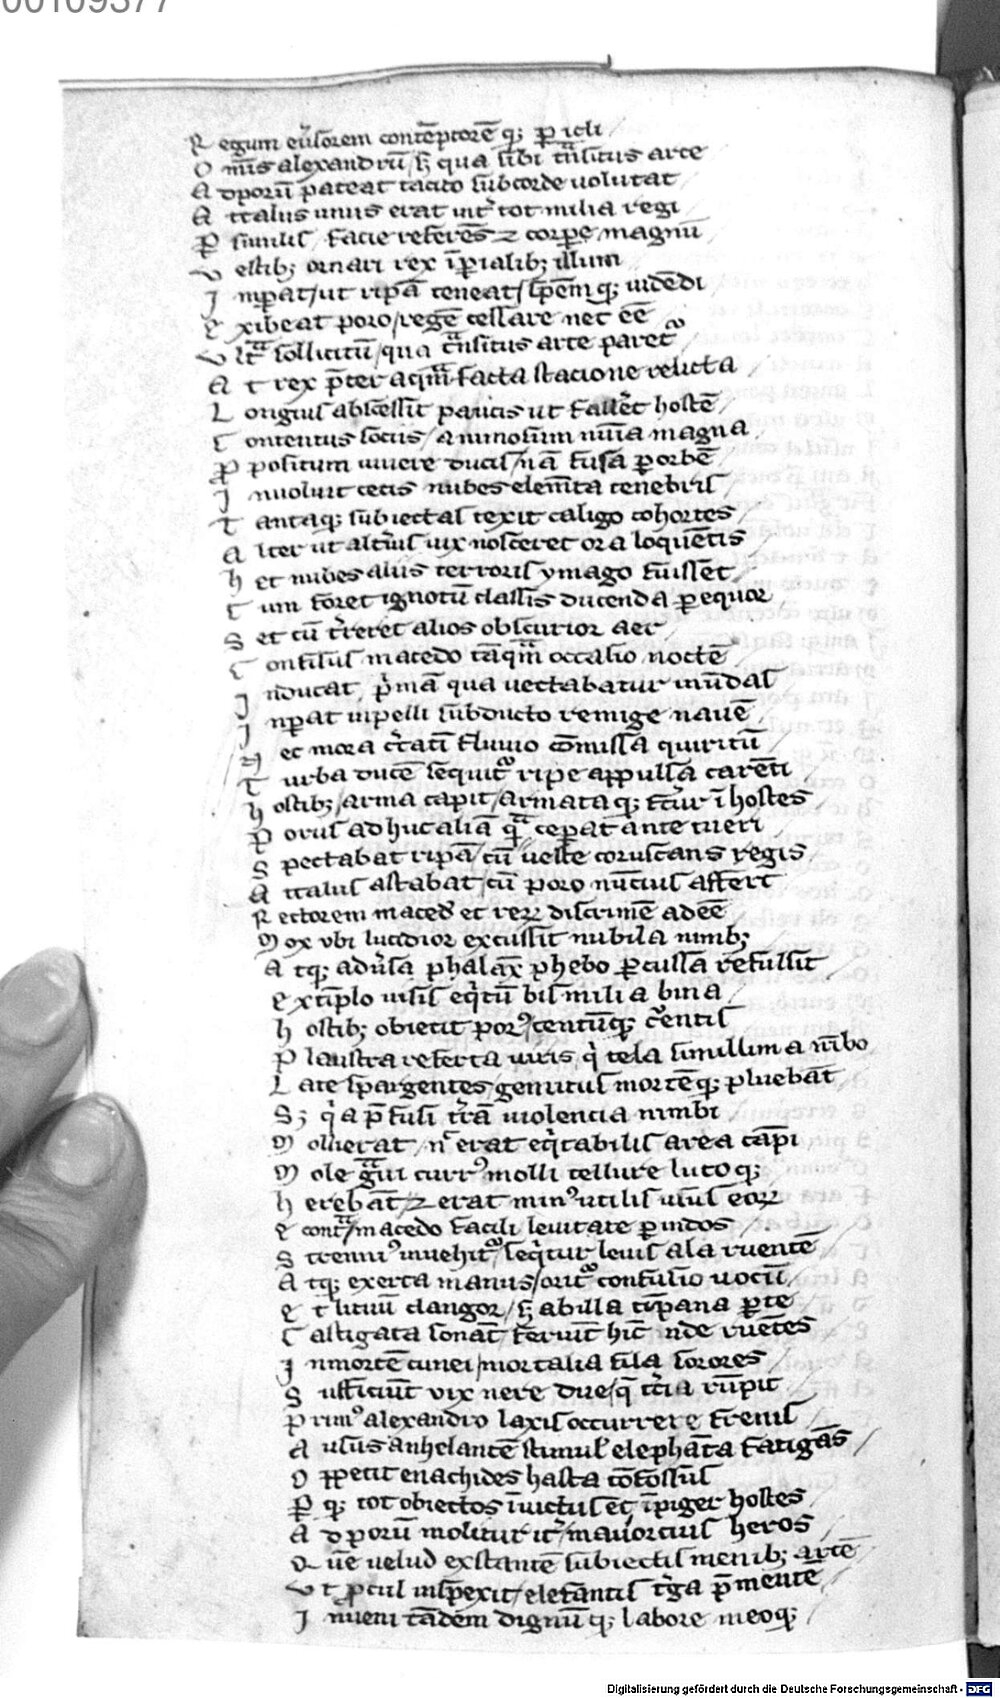 00109377
Regum eu̓sorem contēptorē q; ꝑicli
Om̄is alexandrū / sꝫ qua sibi tͣnsitus arte
Ad porū pateat tacito sub corde uolutat
Attalus unus erat int̓ tot milia regi
Ꝑsimilis / facie referēs ⁊ corꝑe magnū
Vestib; ornari rex īꝑialib; illum
Inꝑat / ut ripā teneat / sꝑemq; uidēdi
Exibeat poro / regē cessare nec eē
Vltͣ sollicitū / qua tͣnsitus arte paretᷣ
At rex p̄ter aqͣm facta stacione relicta
Longius abscessit paucis ut fallet̓ hostē
Contentus sociis / animosum nuīa magna
Ꝓpositum iuuere ducis / nā fusa ꝑ orbē
Inuoluit cecis nubes elem̄ta tenebris
Tantaq; subiectas texit caligo cohortes
Alter ut alt̓ius uix nosceret ora loquētis
Het nubes aliis terroris ymago fuisset
Cum foret ignotū classis ducenda ꝑ equor
Set cū t̓reret alios obscurior aer
Confisus macedo tāqͣm occasio noctē
Inducat, p̓mā qua uectabatur inūdas
Inꝑat inpelli subducto remige nauē
Nec mora c̓tatī fluuio cōmissa quiritū
Turba ducē sequitᷣ ripe appulsa carēti
Hostib; / arma capit / armataq; fertur ī hostes
Porus adhuc aliā qͣ ceꝑat ante tueri
Spectabat ripā / cū ueste coruscans regis
Attalus astabat / cū poro nūcius affert
Rectorem maced̄ et reꝝ discrimē adeē
Mox vbi lucidior excussit nubila nimb;
Atq; adu̓sa phalax̄ phebo ꝑcussa refulsit
Extīplo uisis eq̓tū bis milia bina
Hostib; obiecit porꝰ / centūq; c̓entis
Plaustra referta uiris q̓ tela simillima nībo
Late sꝑargentes / gemitus mortēq; pluebāt
S; q̓a p̄fusi tr̄a uiolencia nimbi
Mollierat / n̄ erat eq̓tabilis area cāpi
Mole gͣui currꝰ molli tellure lutoq;
Herebāt / ⁊ erat minꝰ utilis usus eoꝝ
E contͣ / macedo facili leuitate ꝑ indos
Strennꝰ inuehitᷣ / seq̓tur leuis ala ruentē
Atq; exerta manus / oritᷣ confusio uocū
Et lituū clangor / sꝫ abilla tīpana ꝑte
Castigata sonāt feruūt hīc inde ruētes
In mortē cunei / mortalia fila sorores
Sufficiūt vix nere due / q̄ tc̓ia rūpit
Primꝰ alexandro laxis occurrere frenis
Ausus anhelantē stimul̓ elephāta fatigās
Oppetit enachides hasta cōfossus
Ꝑq; tot obiectos īuictus et īpiger hostes
Ad porū molitur it̓ / mauorcius heros
Que uelud exstantē subiectis menib; artē
Vt ꝓcul inspexit / elefantis t̓ga p̄mentē
Inueni tādem dignū q; labore meoq;
Digitalisierung gefördert durch die Deutsche Forschungsgemeinschaft - DFG